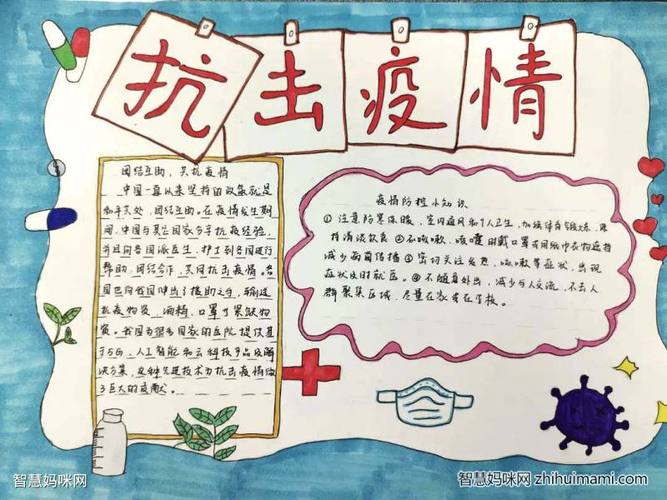 抗击疫情
团结互助，共抗疫情
中国一直以来坚持的政策就是
和平共处，团结互助。在疫情发生期
间，中国与其它国家分享抗疫经验，
并且向各国派医生、护士到各国进行
帮助，团结合作，共同抗击疫情。各
国也向我国伸出了援助之手，输送
抗疫物资，酒精，口罩等紧缺物
资。我国为很多国家的医院提供基
于5G，人工智能和云科技产品及解
决方案，这种先进技术为抗击疫情做
了巨大的贡献。
疫情防控小知识
①注意防寒保暖，室内通风和个人卫生，加强体育锻炼，坚
持清淡饮食②不咳嗽、咳嚏用戴口罩或用纸巾衣物遮挡
减少病菌传播③密切关注发热、咳嗽等症状，出现
症状及时就医。④不随意外出，减少与人交流，不去人
群聚集区域，尽量在家
智慧妈咪网
智慧妈咪网 zhihuimami.com